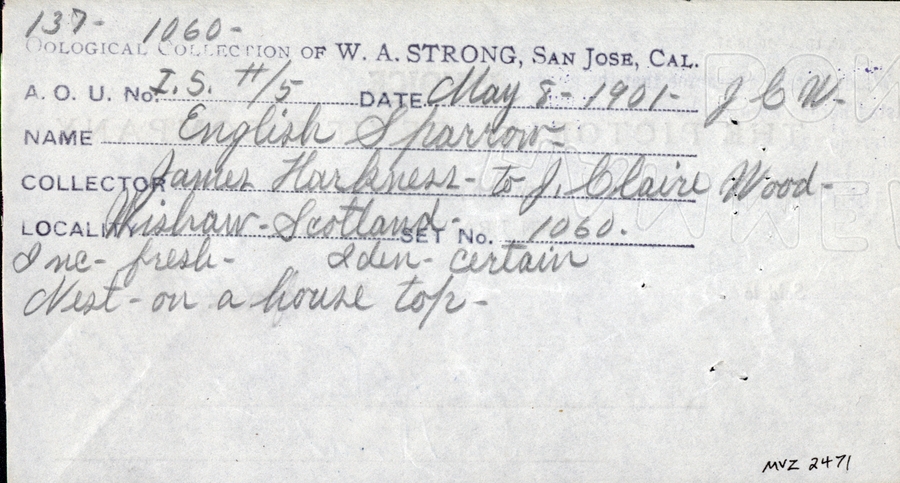 137- 1060-
OOLOGICAL COLLECTION OF W. A. STRONG, SAN JOSE, CAL.
A. O. U. No. I.S. #/5 DATE May 8- 1901- J C W-
NAME English Sparrow-
COLLECTOR James Harkness- to J. Claire Wood-
LOCALITY Wishaw- Scotland- SET No. 1060.
Inc- fresh- Iden- certain
Nest- on a house top-
MVZ 2471